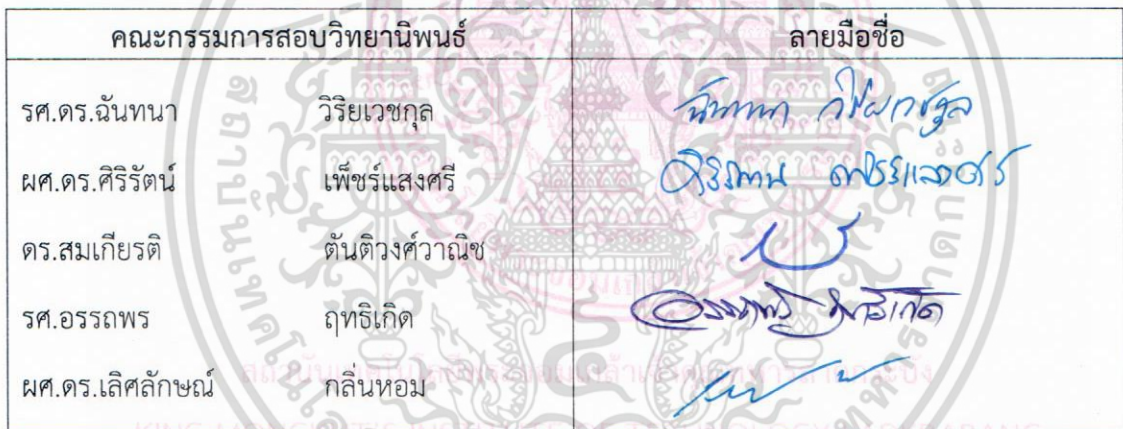 คณะกรรมการสอบวิทยานิพนธ์ ลายมือชื่อ
รศ.ดร.ฉันทนา วิริยเวชกุล ฉันทนา วิริยเวชกุล
ผศ.ดร.ศิริรัตน์ เพ็ชร์แสงศรี ศิริรัตน์ เพ็ชร์แสงศรี
ดร.สมเกียรติ ตันติวงศ์วาณิช
รศ.อรรถพร ฤทธิเกิด อรรถพร ฤทธิเกิด
ผศ.ดร.เลิศลักษณ์ กลิ่นหอม